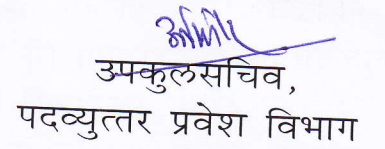 उपकुलसचिव,
पदव्युत्तर प्रवेश विभाग